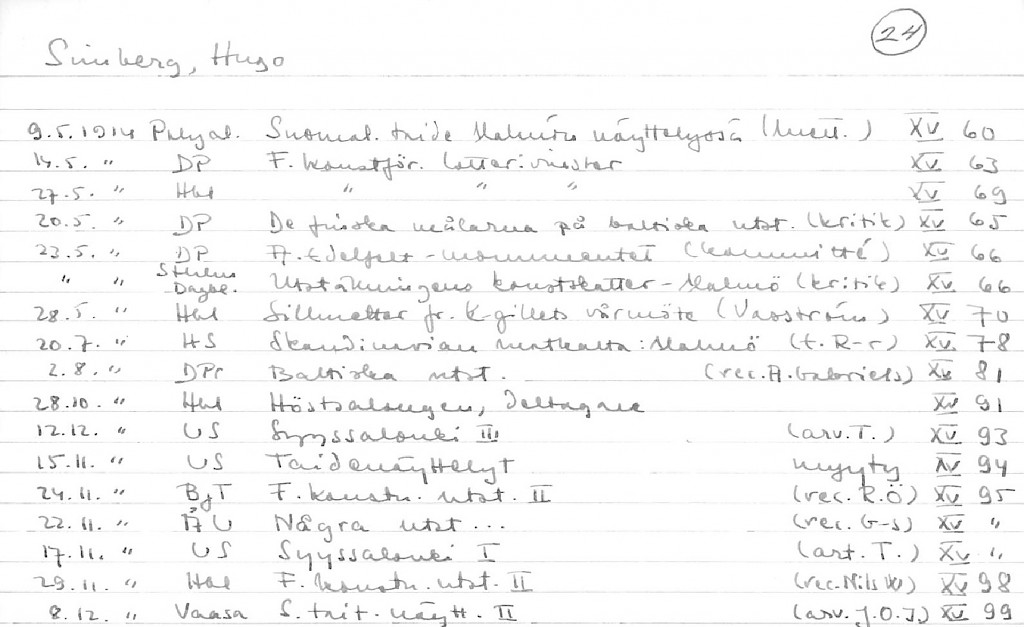 24
Simberg, Hugo
9.5.1914 Suomal. taide Malmön näyttelyssä XV 60
14.5. " DP F. konstför. lotterivinster XV 63
27.5. " Hbl " " " XV 69
20.5. " DP De finska målarna på baltiska utst. (kritik) XV 65
23.5. " DP A. Edelfelt-monumentet (kommitté) XV 66
" " Dagbl. Utställningens konstskatter - Malmö (kritik) XV 66
28.5. " Hbl fr. K-gillets vårmöte (Vasström) XV 70
20.7. " HS Skandinavian matkalta: Malmö (t. R-r) XV 78
2.8. " DPr Baltiska utst. (rec. A. Gabriels) XV 81
28.10. " Hbl Höstsalongen, deltagare XV 91
12.12. " US Syyssalonki III (arv. T.) XV 93
15.11. " US Taidenäyttelyt myyty XV 94
24.11. " BjT F. konstn. utst. II (rec. R.Ö) XV 95
22.11. " ÅU Några utst... (rec. G-s) XV "
17.11. " US Syyssalonki I (art. T.) XV "
29.11. " Hbl F. konstn. utst. II XV 98
8.12. " Vaasa S. tait. näytt. II (arv. J.O.I) XV 99